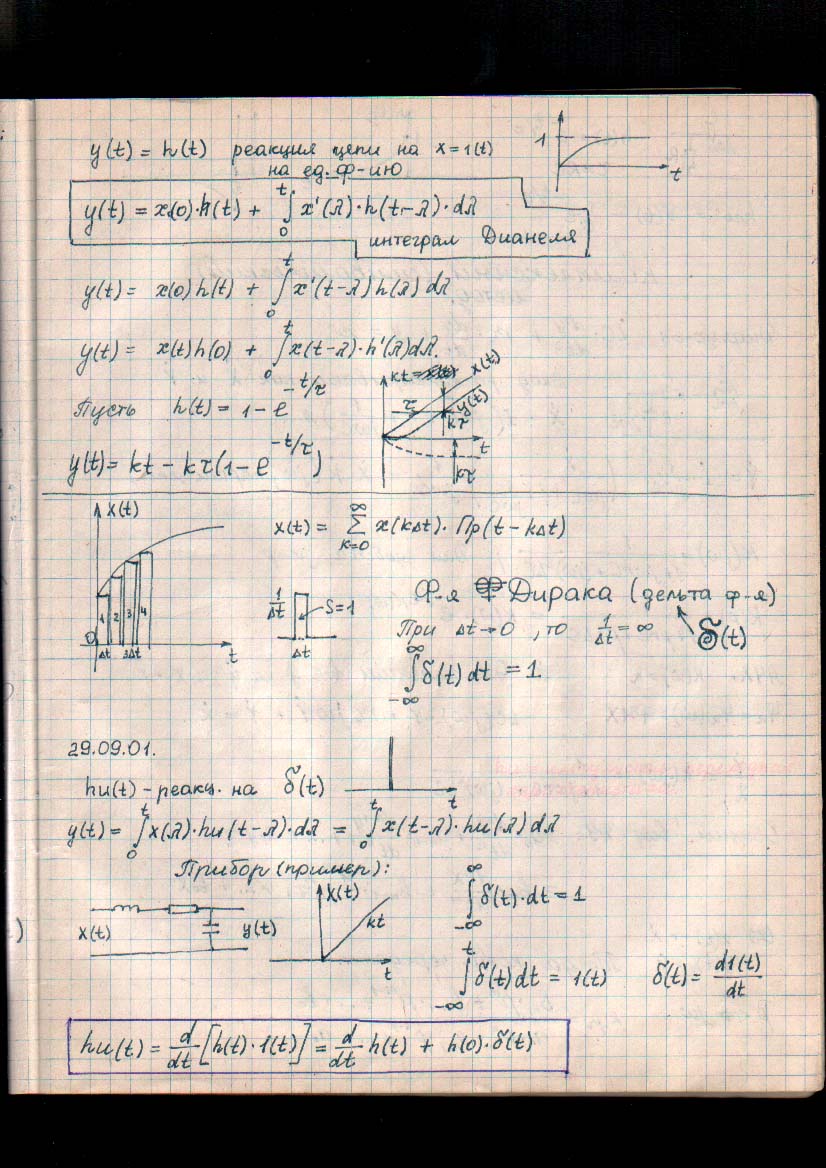 y(t) = h(t) реакция цепи на x=1(t)
на ед. ф-ию
1
t
y(t) = x(0)·h(t) + ∫₀ᵗ x'(λ)·h(t-λ)·dλ
интеграл Дианеля
y(t) = x(0)h(t) + ∫₀ᵗ x'(t-λ)h(λ)dλ
y(t) = x(t)h(0) + ∫₀ᵗ x(t-λ)·h'(λ)dλ.
Пусть h(t) = 1 - e^(-t/τ)
y(t) = kt - kτ(1 - e^(-t/τ))
kt = x(t)
x(t)
τ
y(t)
kτ
t
kτ
x(t)
1 2 3 4
0
Δt 3Δt t
x(t) = ∑_(k=0)^∞ x(kΔt)·Пр(t-kΔt)
1/Δt
S=1
Δt
Ф-я Дирака (дельта ф-я)
При Δt→0, то 1/Δt = ∞ δ(t)
∫_(-∞)^∞ δ(t)dt = 1
29.09.01.
hи(t) - реакц. на δ(t)
t
y(t) = ∫₀ᵗ x(λ)·hи(t-λ)·dλ = ∫₀ᵗ x(t-λ)·hи(λ)dλ
Прибор (пример):
x(t)
y(t)
x(t)
kt
t
∫_(-∞)^∞ δ(t)·dt = 1
∫_(-∞)^t δ(t)dt = 1(t) δ(t) = d1(t)/dt
hи(t) = d/dt [h(t)·1(t)] = d/dt h(t) + h(0)·δ(t)